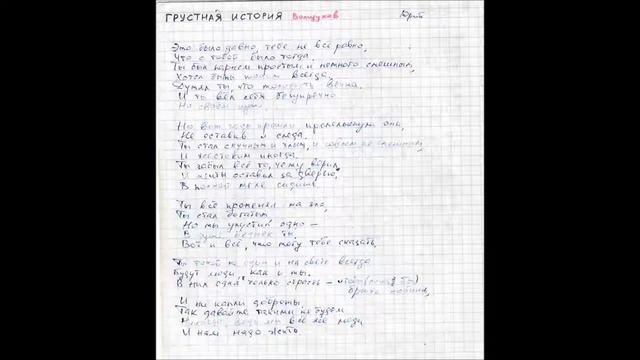 ГРУСТНАЯ ИСТОРИЯ Юрий
Это было давно, тебе не всё равно,
Что с тобой было тогда.
Ты был парнем простым и немного смешным,
Хотел быть таким всегда,
Думал ты, что молодость вечна.
И ты вёл себя безупречно
Но вот годы прошли, промелькнули они,
Не оставив и следа.
Ты стал скучным и злым, и совсем не смешным,
И жестоким иногда.
Ты забыл всё то, чему верил,
И жизнь оставил за дверью,
В полной мгле сидишь
Ты всё променял на зло,
Ты стал богатым
Но ты упустил одно —
В душе бедняк ты.
Вот и всё, что могу тебе сказать,
Ты такой не один и на свете всегда
Будут люди как и ты.
В них одна только страсть —
И ни капли доброты.
Так давайте такими не будем
ведь мы все же люди
И нам надо жить.